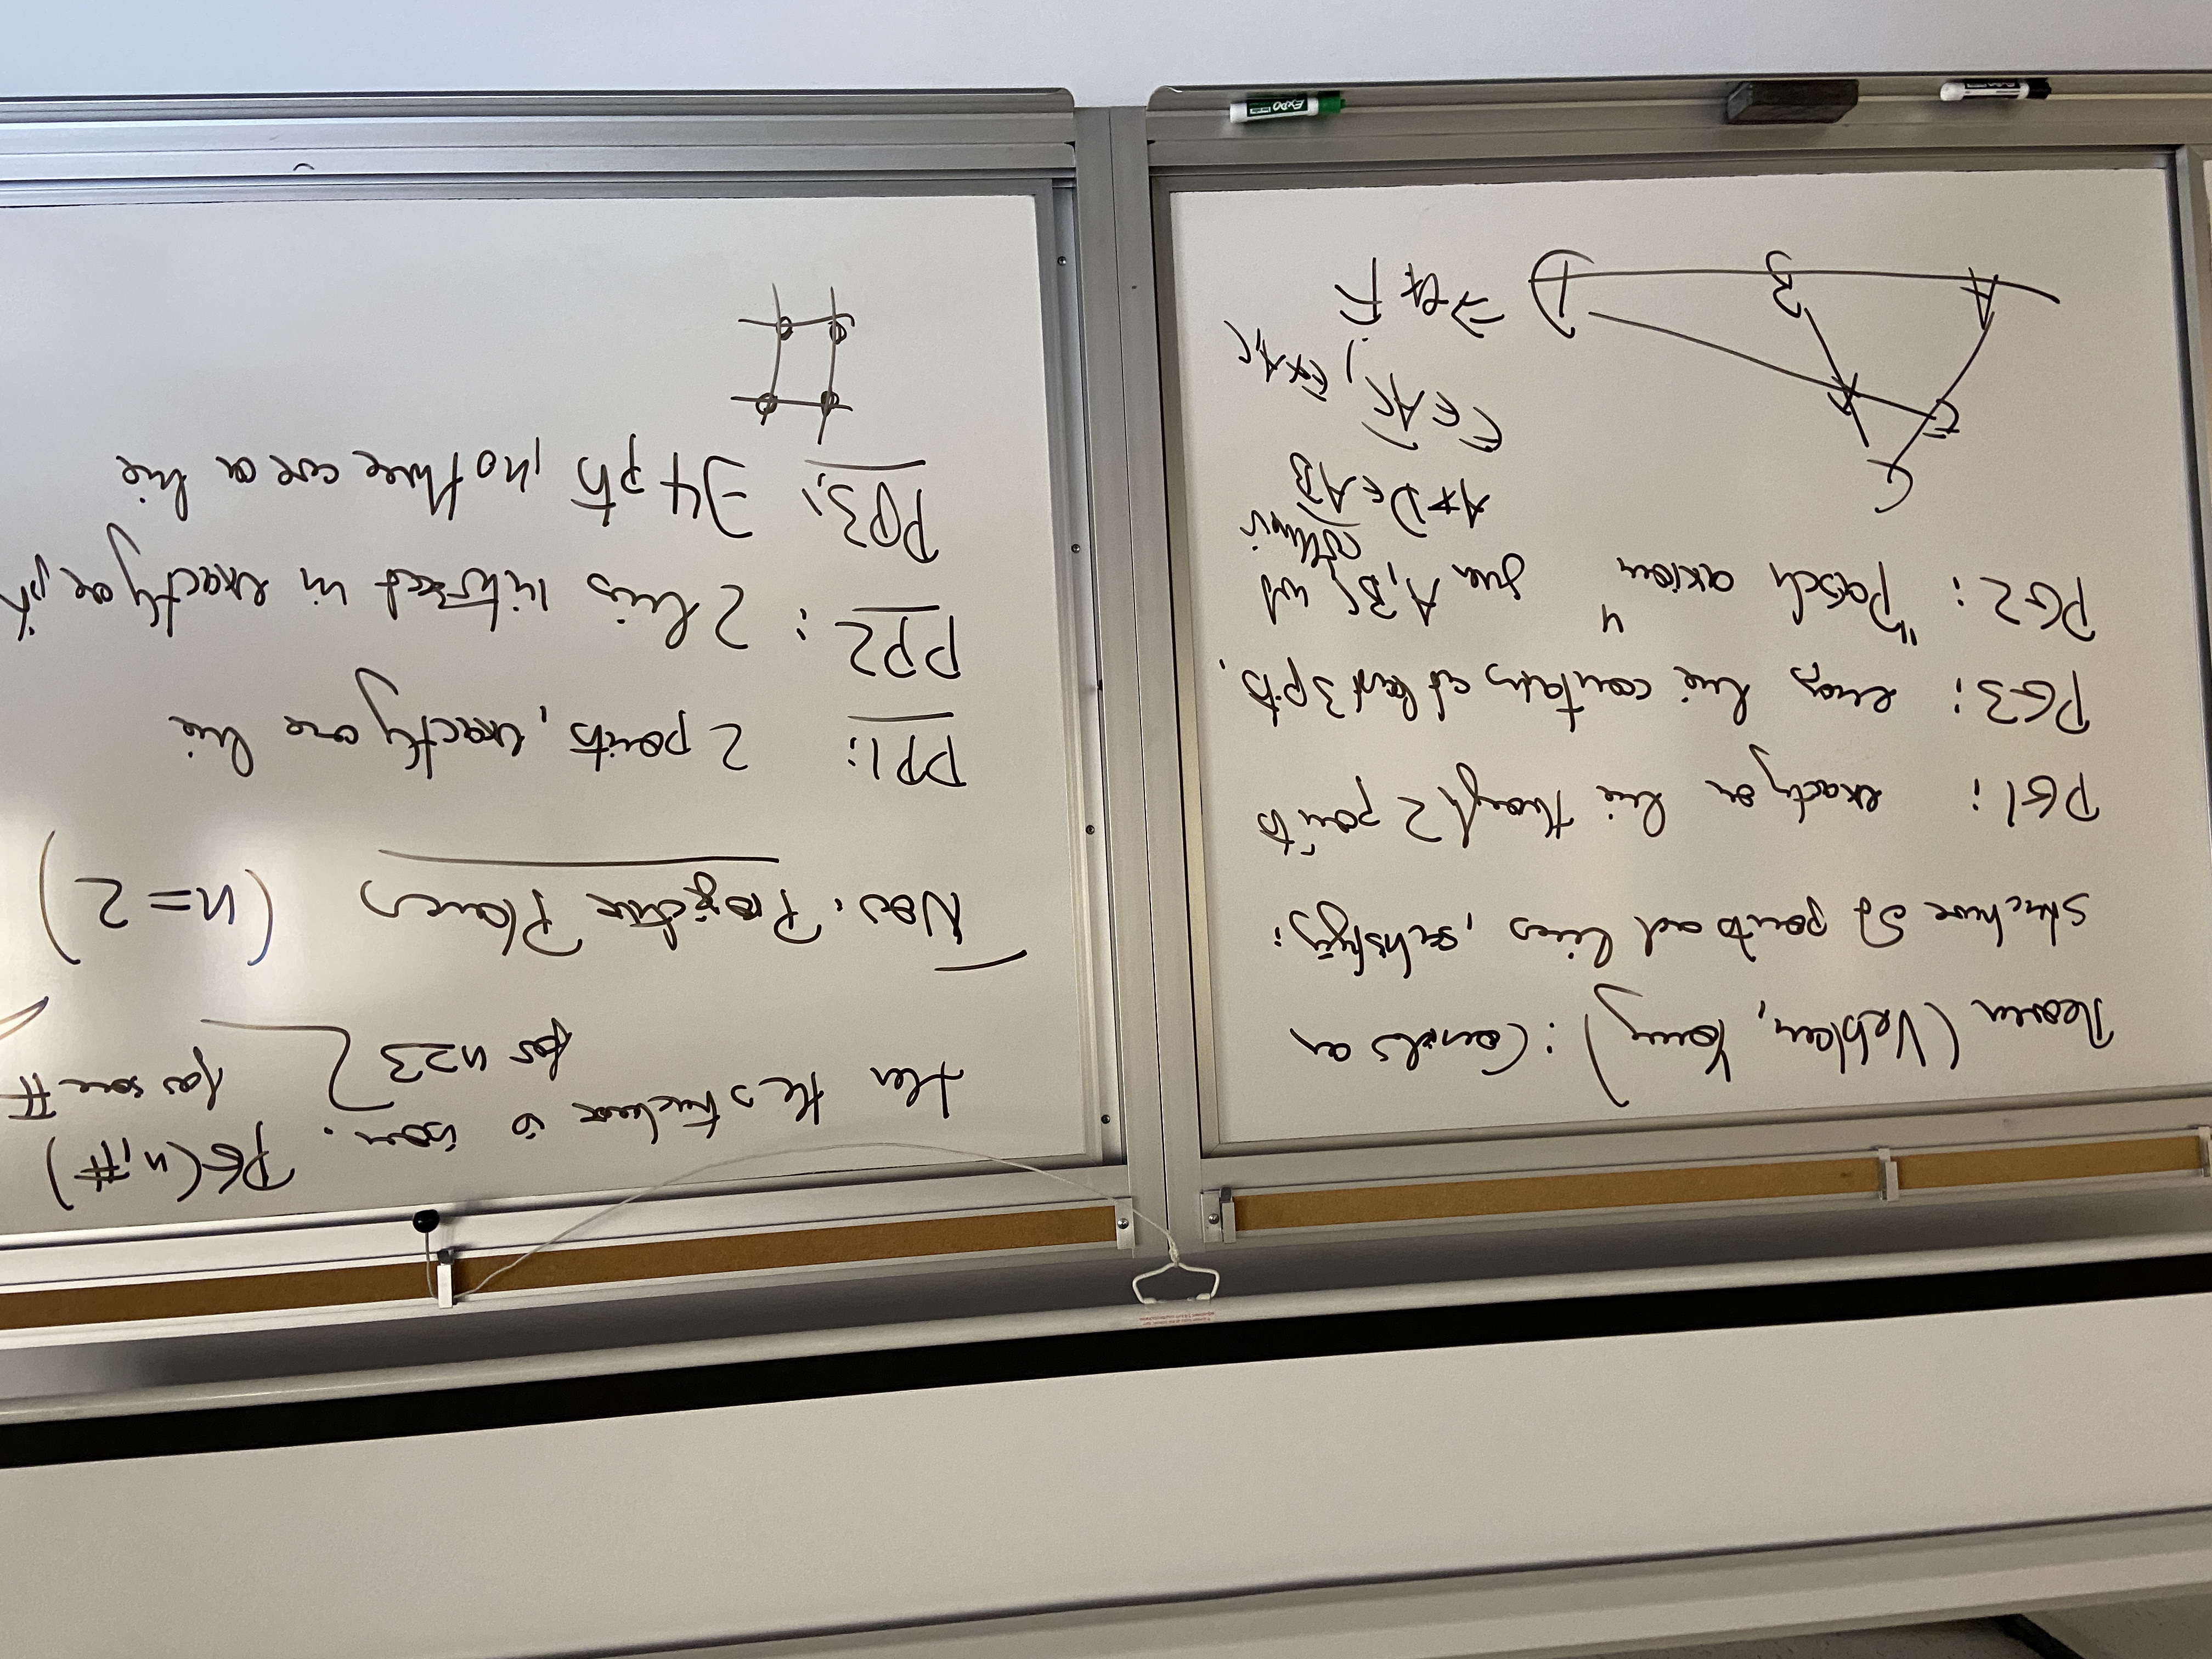 Theorem (Veblen, Young): Consider an
structure of points and lines, satisfying:
PG1: exactly one line through 2 points
PG3: every line contains at least 3 pts.
PG2: "Pasch axiom" given A, B, C not
collinear
A ≠ D ∈ AB
E ∈ AC, E ≠ A, C
⇒ ∃ F
C
E
F
A
B
D
then the structure is isom. PG(n, F)
for n≥3
for some F
Now: Projective Planes (n=2)
PP1: 2 points, exactly one line
PP2: 2 lines intersect in exactly one pt.
PP3: ∃ 4 pts, no three are on a line
EXPO